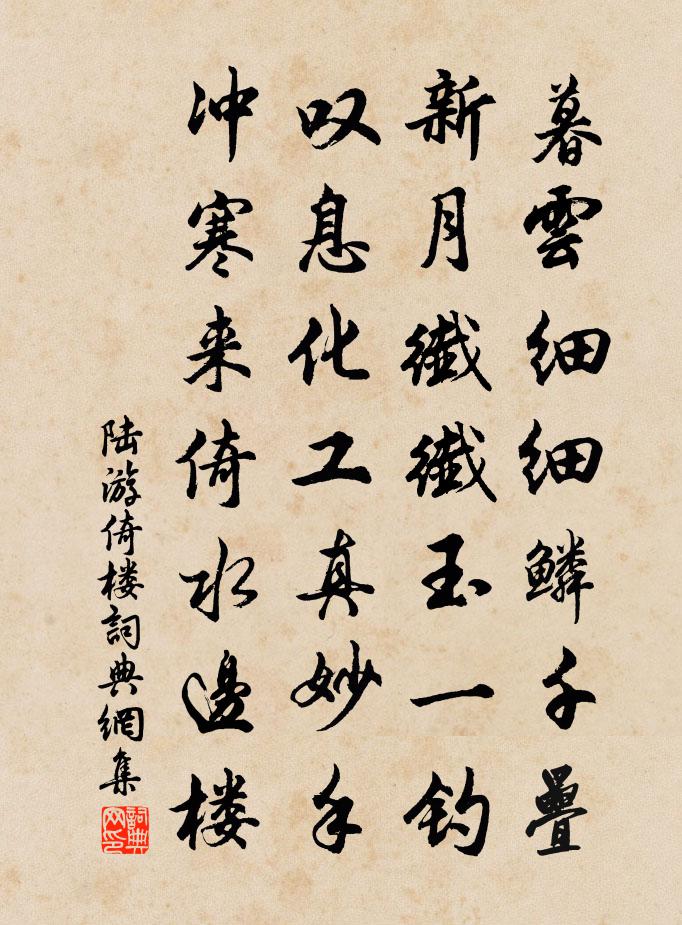 暮雲细细鱗千疊
新月纖纖玉一钓
叹息化工真妙手
冲寒来倚水邊楼
陆游倚楼詞典網集
詞典网印